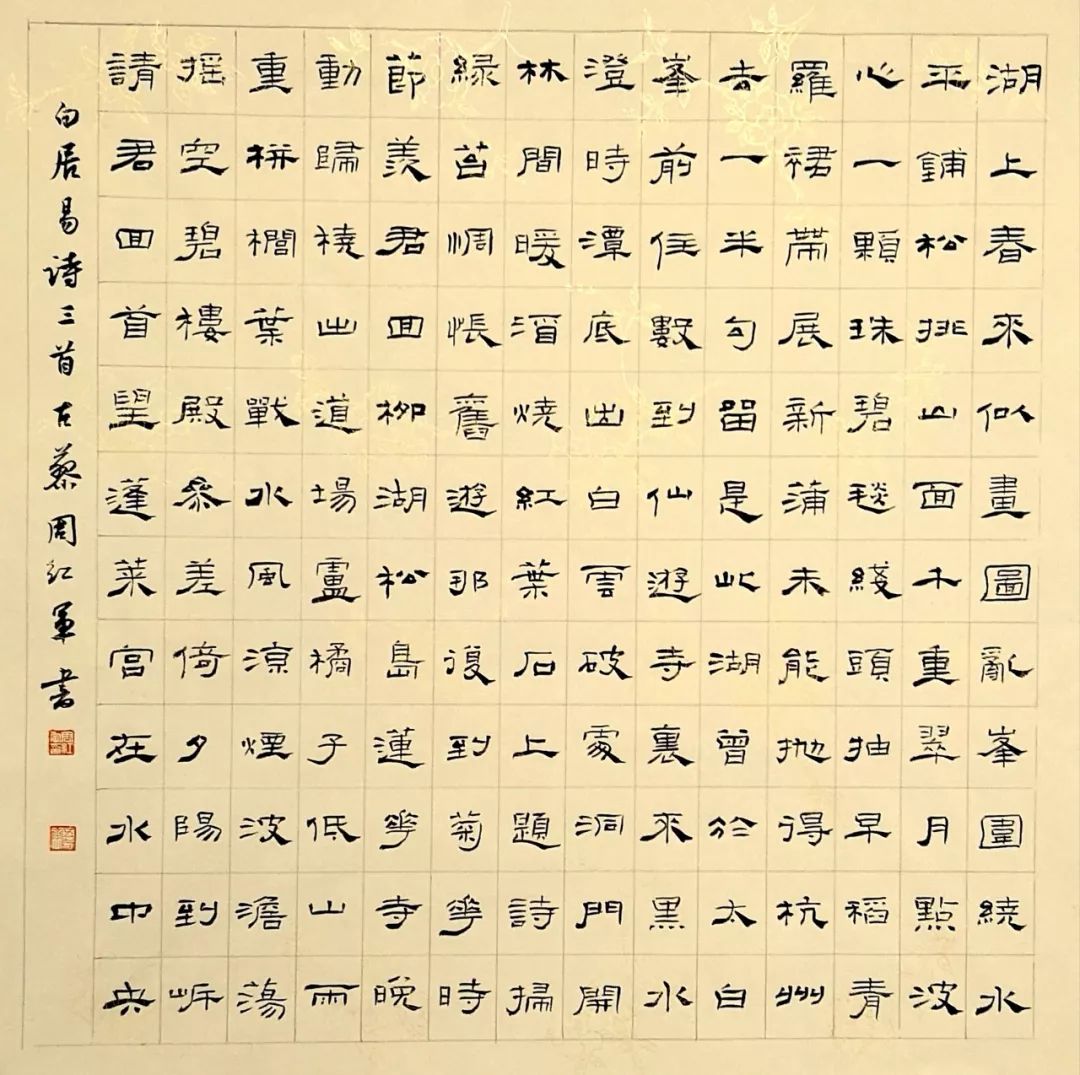 湖上春來似畫圖亂峯圍繞水
平鋪松排山面千重翠月點波
心一顆珠碧毯綫頭抽早稻青
羅裙帶展新蒲未能抛得杭州
去一半勾留是此湖曾於太白
峯前住數到仙遊寺裏來黑水
澄時潭底出白雲破處洞門開
林間暖酒燒紅葉石上題詩掃
緑苔惆悵舊遊那復到菊花時
節羨君回柳湖松島蓮花寺晚
動歸橈出道場盧橘子低山雨
重栟櫚葉戰水風涼煙波澹蕩
摇空碧樓殿參差倚夕陽到岸
請君回首望蓬萊宫在水中央
白居易诗三首古蔡周红軍书